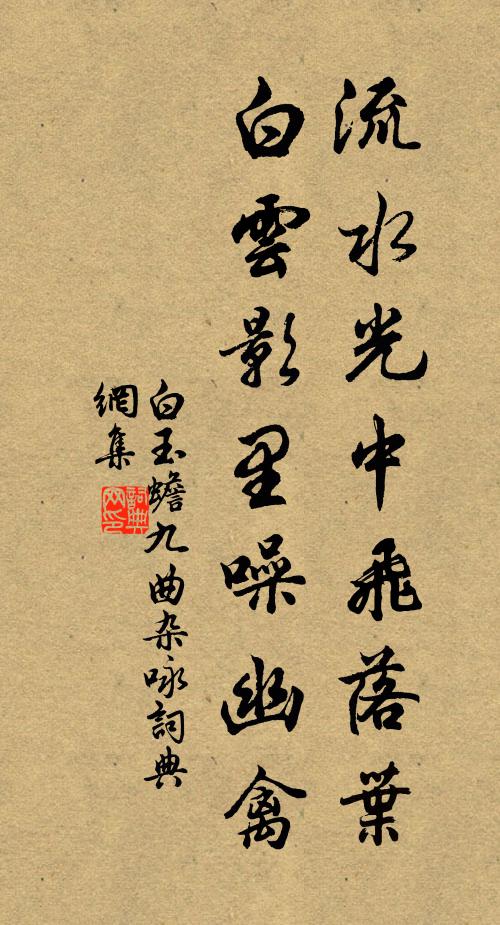 流水光中飛落葉
白雲影里噪幽禽
白玉蟾九曲杂咏詞典
網集
詞典
网印